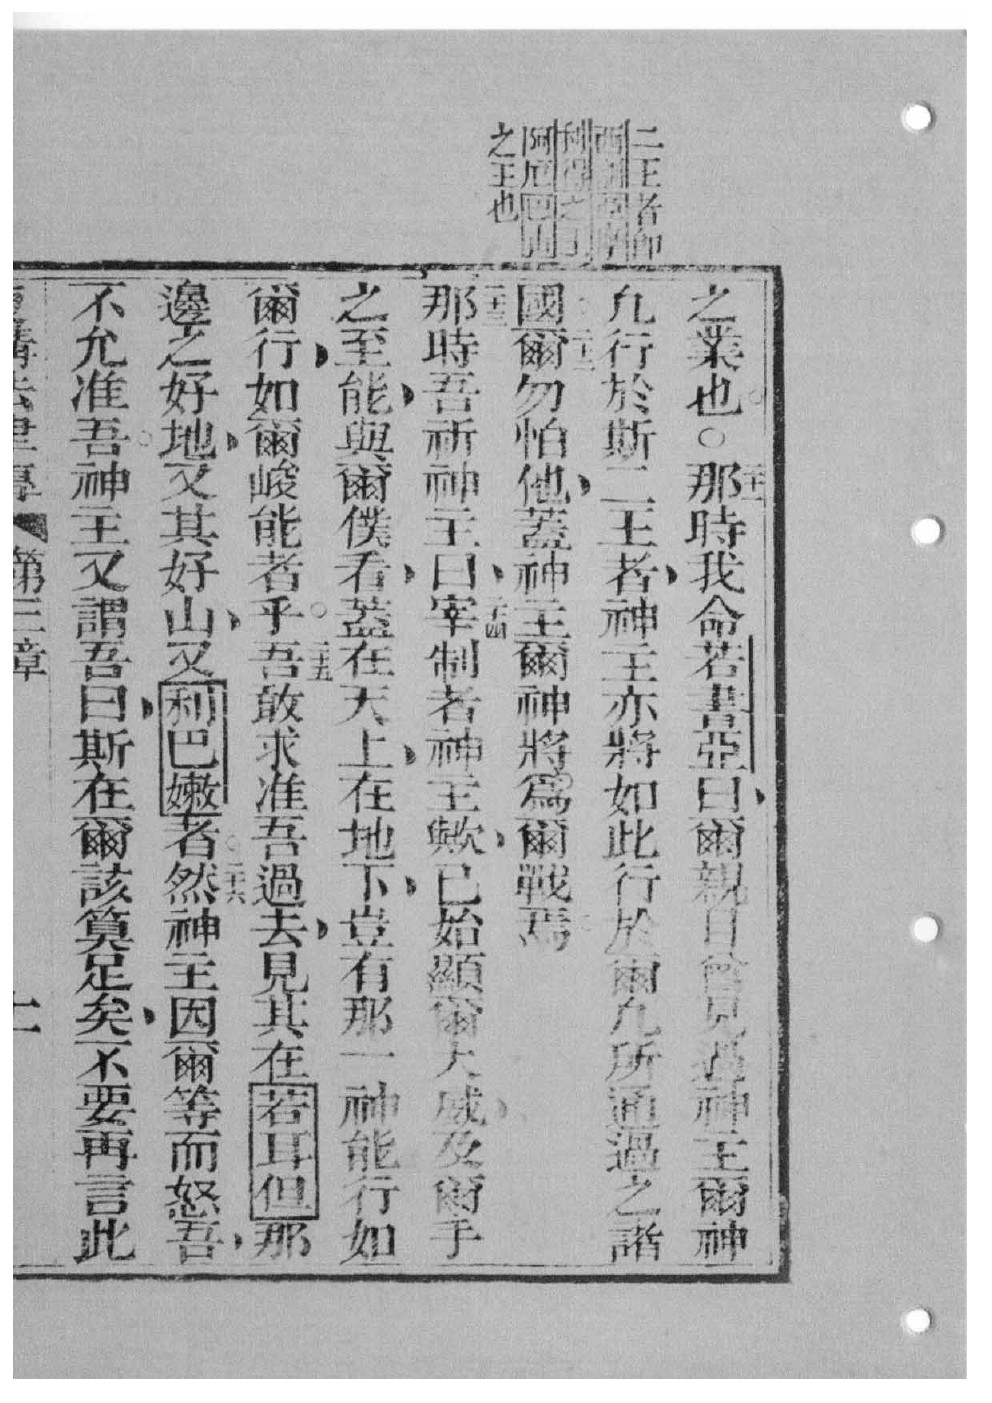 二王者即
西訇
利得之王
阿厄巴山
之王也
之業也○那時我命若書亞曰爾親目曾見過神主爾神
二十一
凡行於斯二王者神主亦將如此行於爾凡所通過之諸
國爾勿怕他蓋神主爾神將為爾戰焉
二十二
那時吾祈神主曰宰制者神主歟已始顯爾大威及爾手
二十三
二十四
之至能與爾僕看蓋在天上在地下豈有那一神能行如
爾行如爾峻能者乎吾敢求准吾過去見其在若耳但那
二十五
邊之好地又其好山又利巴嫩者然神主因爾等而怒吾
二十六
不允准吾神主又謂吾曰斯在爾該算足矣不要再言此
復講法律傳 第三章 十